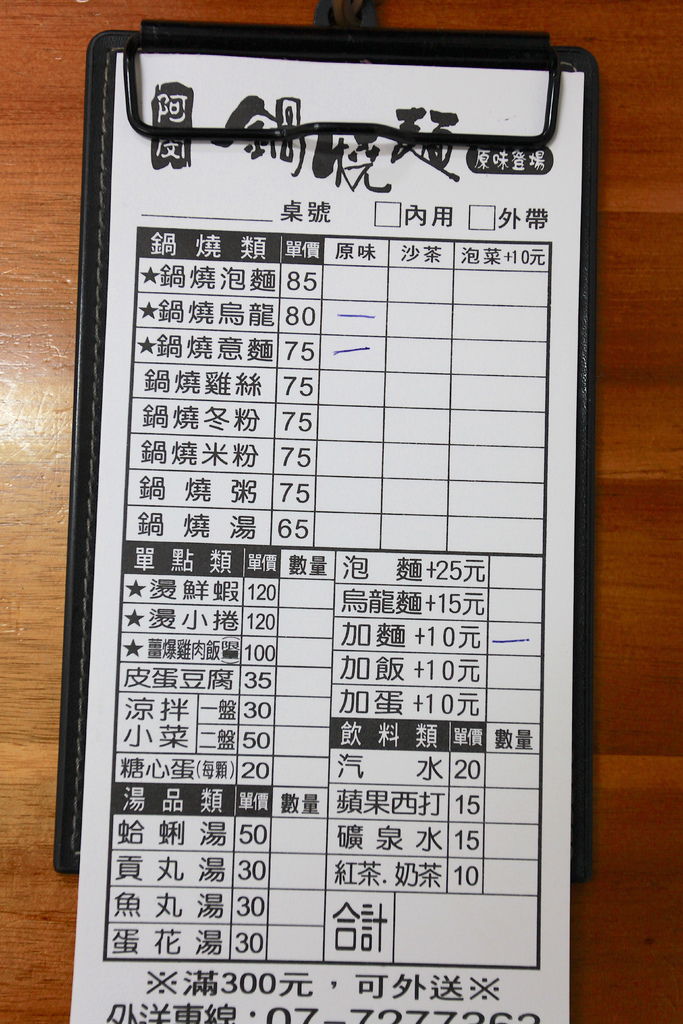 阿皮 鍋燒麵 原味登場
桌號 □內用 □外帶
鍋燒類 單價 原味 沙茶 泡菜+10元
★鍋燒泡麵 85
★鍋燒烏龍 80 —
★鍋燒意麵 75 —
鍋燒雞絲 75
鍋燒冬粉 75
鍋燒米粉 75
鍋燒粥 75
鍋燒湯 65
單點類 單價 數量
★燙鮮蝦 120
★燙小捲 120
★薑爆雞肉飯 100
皮蛋豆腐 35
涼拌小菜 一盤 30
二盤 50
糖心蛋(每顆) 20
湯品類 單價 數量
蛤蜊湯 50
貢丸湯 30
魚丸湯 30
蛋花湯 30
泡麵+25元
烏龍麵+15元
加麵+10元 —
加飯+10元
加蛋+10元
飲料類 單價 數量
汽水 20
蘋果西打 15
礦泉水 15
紅茶.奶茶 10
合計
※滿300元，可外送※
外送專線：07-7277363